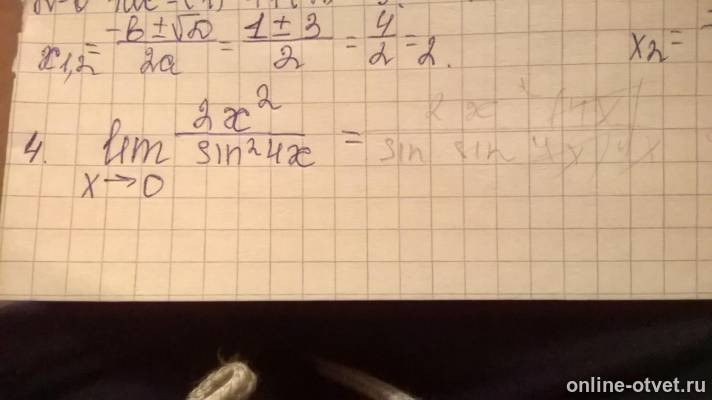 x₁,₂ = (-в ± √D)/2a = (1 ± 3)/2 = 4/2 = 2. x₂ =
4. lim x→0 2x²/sin²4x =
online-otvet.ru